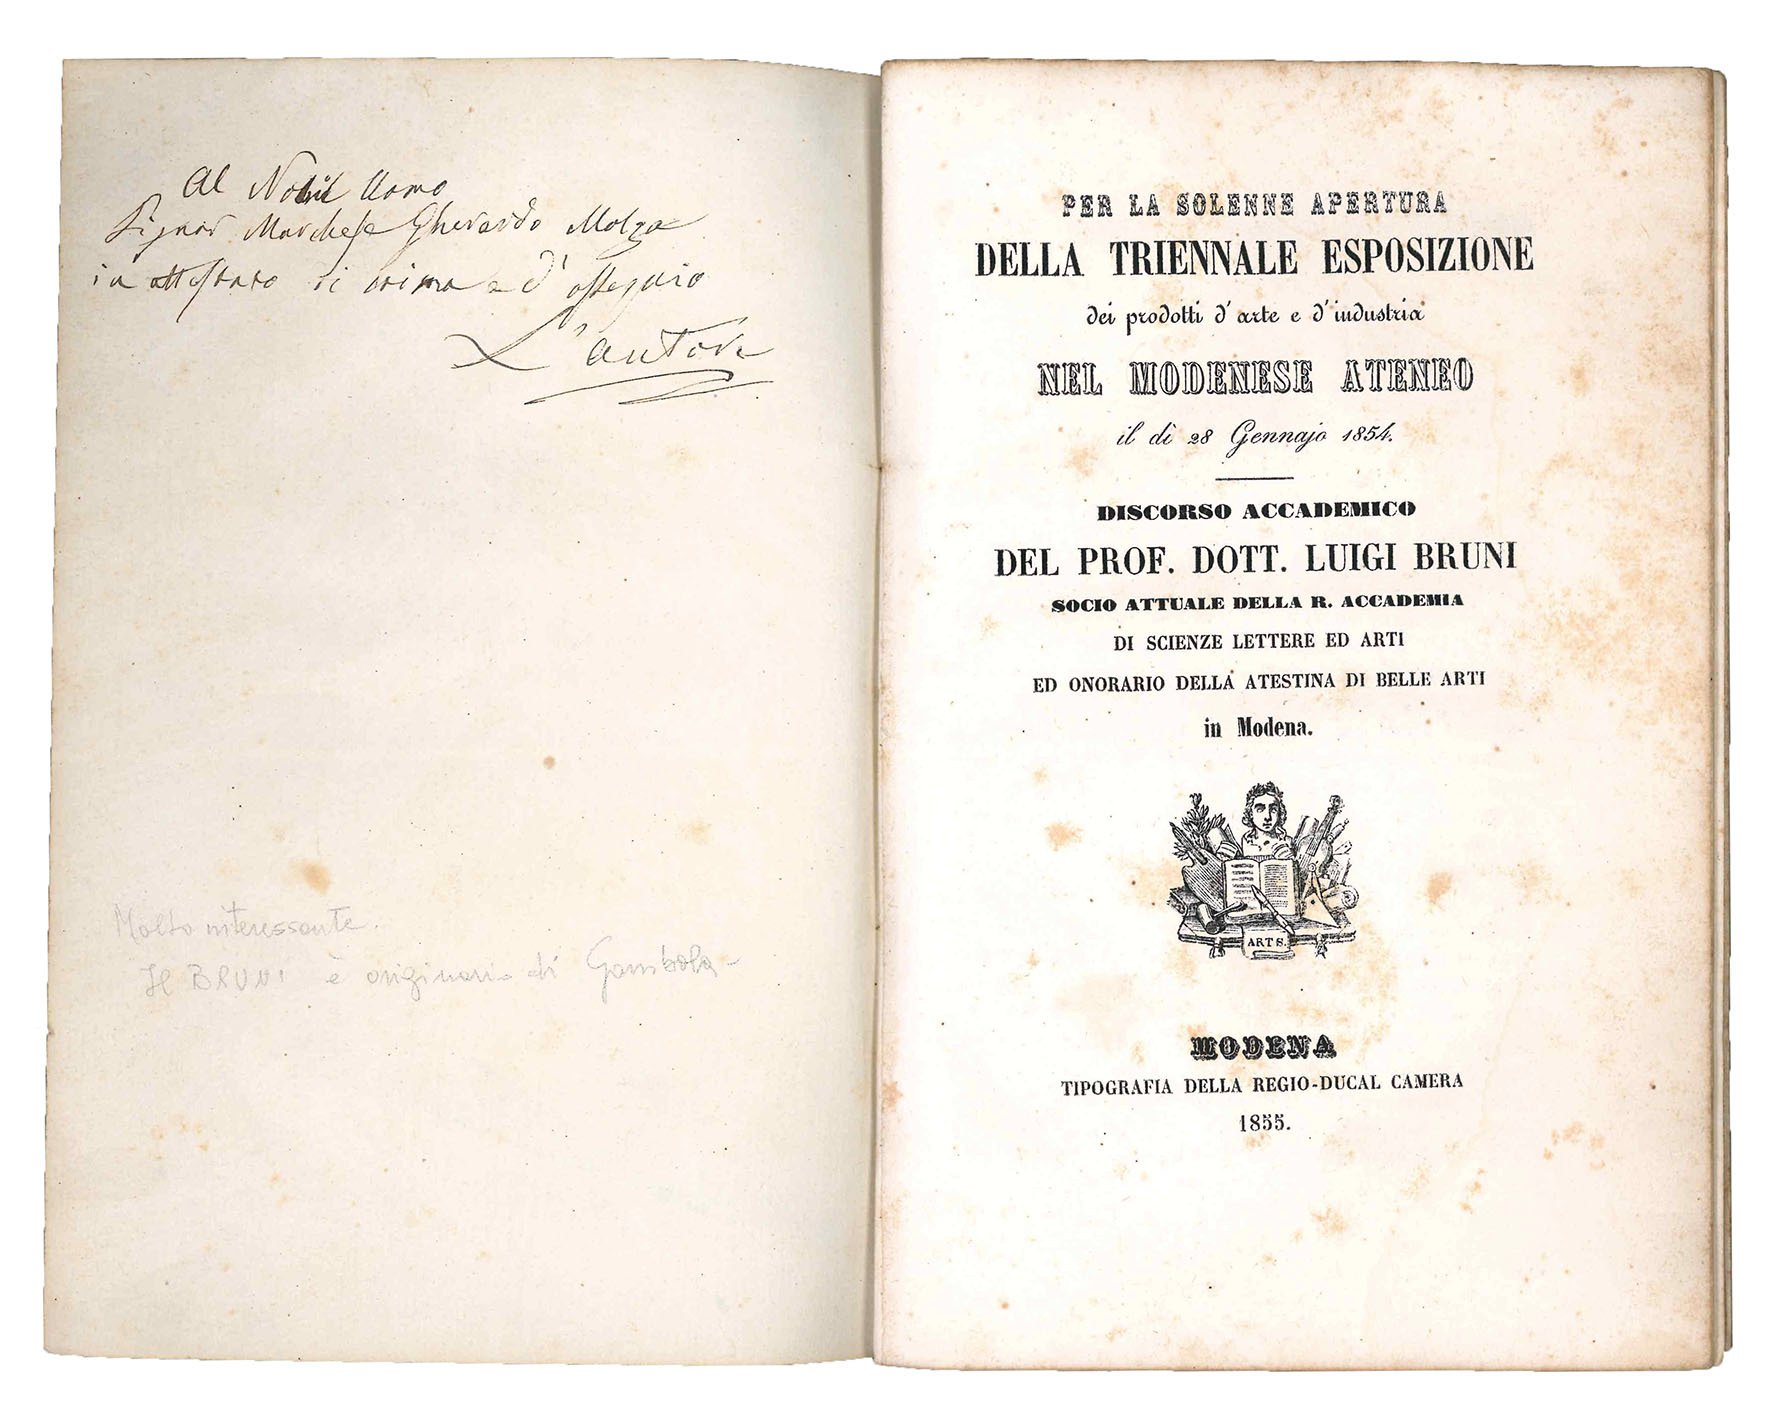 Al Nobil Uomo
Signor Marchese Gherardo Molza
in attestato di stima e d'ossequio
L'autore
Molto interessante.
Il BRUNI è originario di
PER LA SOLENNE APERTURA
DELLA TRIENNALE ESPOSIZIONE
dei prodotti d'arte e d'industria
NEL MODENESE ATENEO
il dì 28 Gennajo 1854.
DISCORSO ACCADEMICO
DEL PROF. DOTT. LUIGI BRUNI
SOCIO ATTUALE DELLA R. ACCADEMIA
DI SCIENZE LETTERE ED ARTI
ED ONORARIO DELLA ATESTINA DI BELLE ARTI
in Modena.
ARTS.
MODENA
TIPOGRAFIA DELLA REGIO-DUCAL CAMERA
1855.